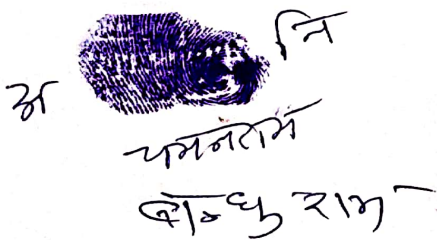 अ नि
चमनराम
बोन्धु राम